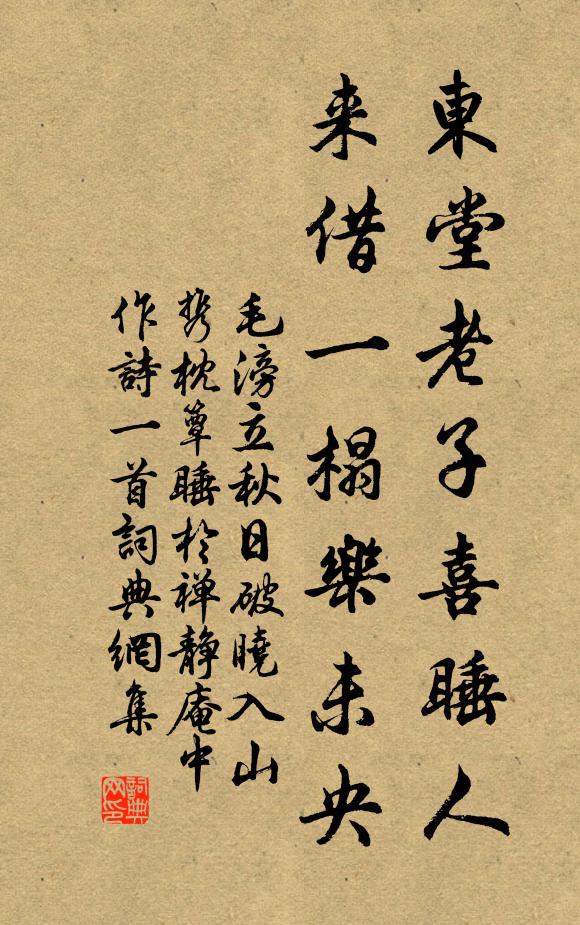 東堂老子喜睡人
来借一榻樂未央
毛滂立秋日破曉入山
携枕簟睡於禅静庵中
作詩一首詞典網集
詞典
网印